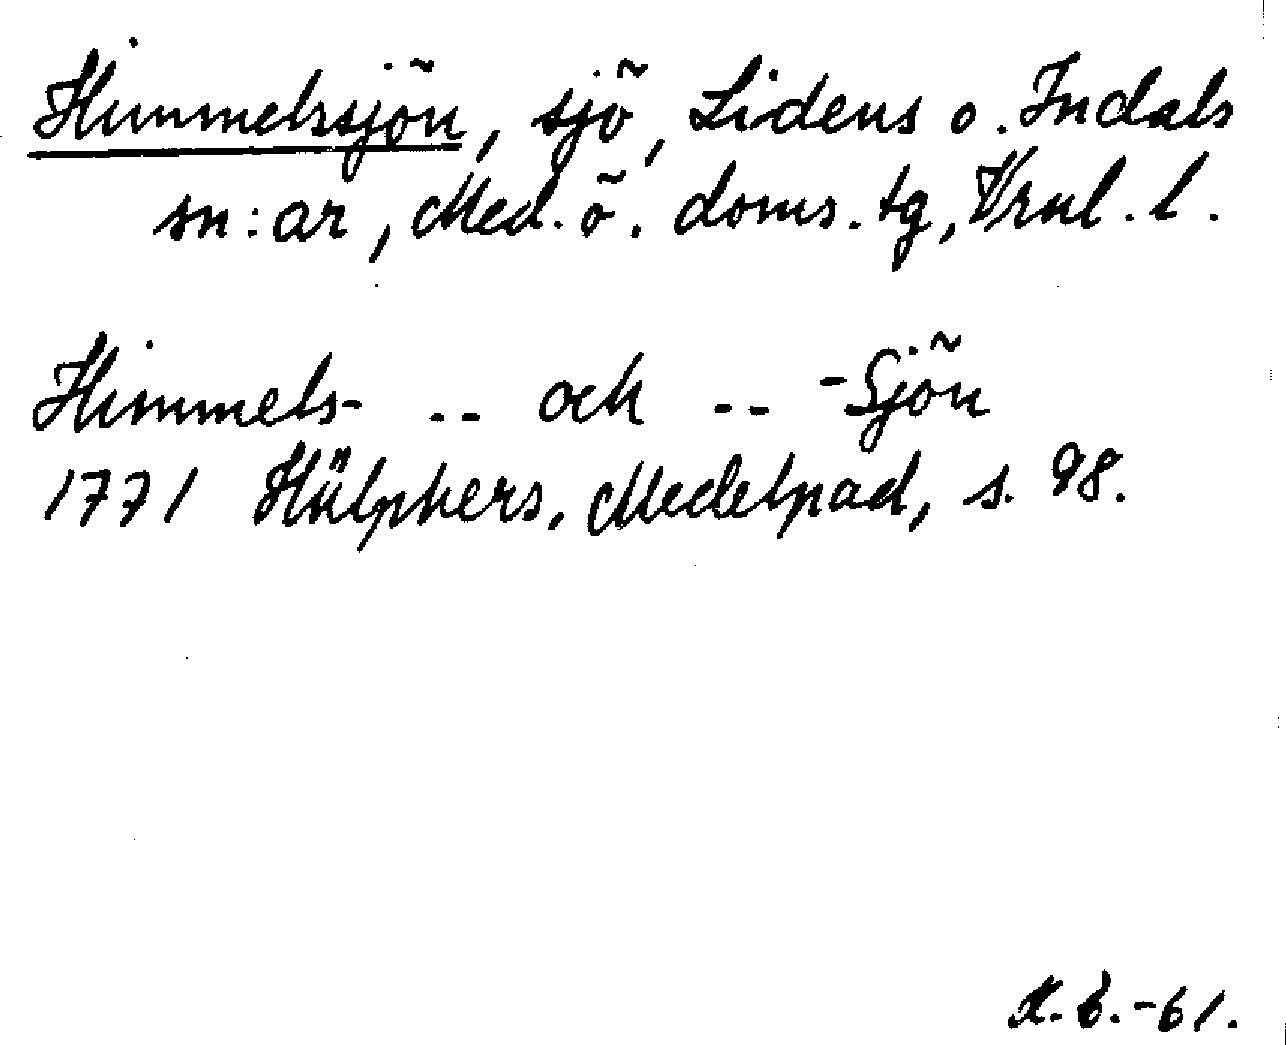 Himmelssjön, sjö, Lidens o. Indals
sn:ar, Med. ö. doms. tg, Vrnl. l.
Himmels- -- och -- -Sjön
1771 Hülphers, Medelpad, s. 98.
-61.